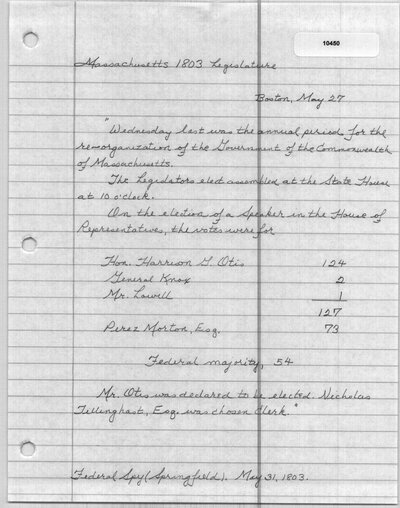 10450
Massachusetts 1803 Legislature
Boston, May 27
"Wednesday last was the annual period for the
re-organization of the Government of the Commonwealth
of Massachusetts.
The Legislators elect assembled at the State House
at 10 o'clock.
On the election of a Speaker in the House of
Representatives, the votes were for
Hon. Harrison G. Otis 124
General Knox 2
Mr. Lowell 1
127
Perez Morton, Esq. 73
Federal majority, 54
Mr. Otis was declared to be elected. Nicholas
Tillinghast, Esq. was chosen Clerk."
Federal Spy (Springfield). May 31, 1803.